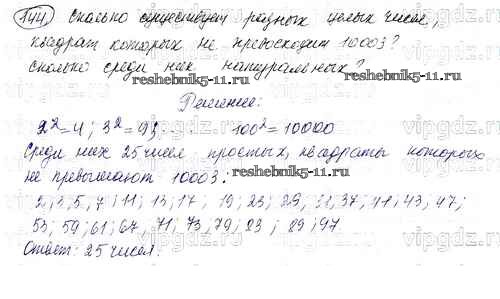 144. Сколько существует разных целых чисел,
квадрат которых не превосходит 10003?
Сколько среди них натуральных?
reshebnik5-11.ru reshebnik5-11.ru
Решение:
2²=4; 3²=9; 100²=10000
Среди них 25 чисел простых, квадраты которых
не превышают 10003:
2, 3, 5, 7, 11; 13; 17; 19; 23; 29; 37; 41; 43; 47;
53; 59; 61; 67, 71; 73; 79; 83; 89; 97
Ответ: 25 чисел.
vipgdz.ru